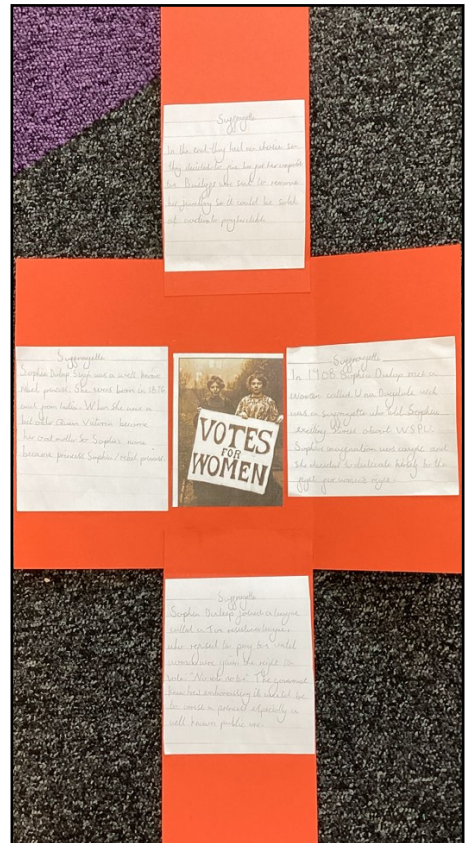 Suffragette
In the end they had no choice so
they decided to
her who sent to
her jewellery so it would be sold
at
Suffragette
Sophia Dulep Singh was a well known
rebel princess. She was born in 1876
and from India. When she was a
Queen Victoria became
her Godmother so Sophia's name
became princess Sophia / rebel princess.
VOTES
FOR
WOMEN
Suffragette
In 1908 Sophia Duleep met a
woman called Una Dugdale who
was a suffragette who told Sophia
exciting stories about WSPU.
Sophia's imagination was caught and
she decided to dedicate herself to the
fight for women's rights.
Suffragette
Sophia Duleep joined a league
called
who refused to pay tax until
the right to
vote. "No vote no tax". The goverment
knew how embarassing it would be
to a princess especially a
well known public one.